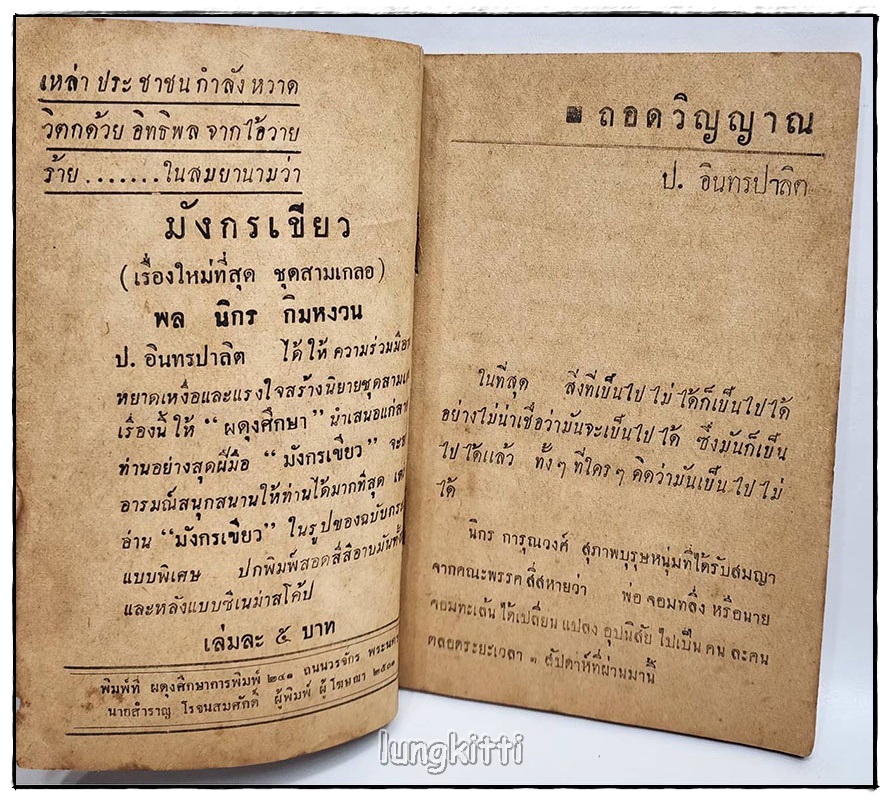 เหล่า ประ ชาชน กำลัง หวาด
วิตกด้วย อิทธิพล จาก ไอ้วาย
ร้าย ....... ในสมยานามว่า
มังกรเขียว
(เรื่องใหม่ที่สุด ชุดสามเกลอ)
พล นิกร กิมหงวน
ป. อินทรปาลิต ได้ ให้ ความร่วมมือ
หยาดเหงื่อและแรงใจสร้างนิยายชุดสาม
เรื่องนี้ ให้ “ ผดุงศึกษา ” นำเสนอแก่
ท่านอย่างสุดฝีมือ “ มังกรเขียว ”
อารมณ์สนุกสนานให้ท่านได้มากที่สุด
อ่าน “มังกรเขียว” ในรูปของฉบับ
แบบพิเศษ ปกพิมพ์สอดสี่สีอาบมัน
และหลังแบบซิเนม่าสโค้ป
เล่มละ ๕ บาท
พิมพ์ที่ ผดุงศึกษาการพิมพ์ ๒๔๑ ถนนวรจักร พระนคร
นายสำราญ โรจนสมศักดิ์ ผู้พิมพ์ ผู้โฆษณา ๒๕๐๑
ถอดวิญญาณ
ป. อินทรปาลิต
ในที่สุด สิ่งที่เป็นไป ไม่ ได้ก็เป็นไป ได้
อย่างไม่น่าเชื่อว่ามันจะเป็นไป ได้ ซึ่งมันก็เป็น
ไป ได้แล้ว ทั้ง ๆ ที่ใคร ๆ คิดว่ามันเป็น ไป ไม่
ได้
นิกร การุณวงศ์ สุภาพบุรุษหนุ่มที่ได้รับสมญา
จากคณะพรรค สี่สหายว่า พ่อ จอมทลึ่ง หรือนาย
จอมทะเล้น ได้เปลี่ยน แปลง อุปนิสัย ไปเป็น คน ละคน
ตลอดระยะเวลา ๓ สัปดาห์ที่ผ่านมานี้
lungkitti